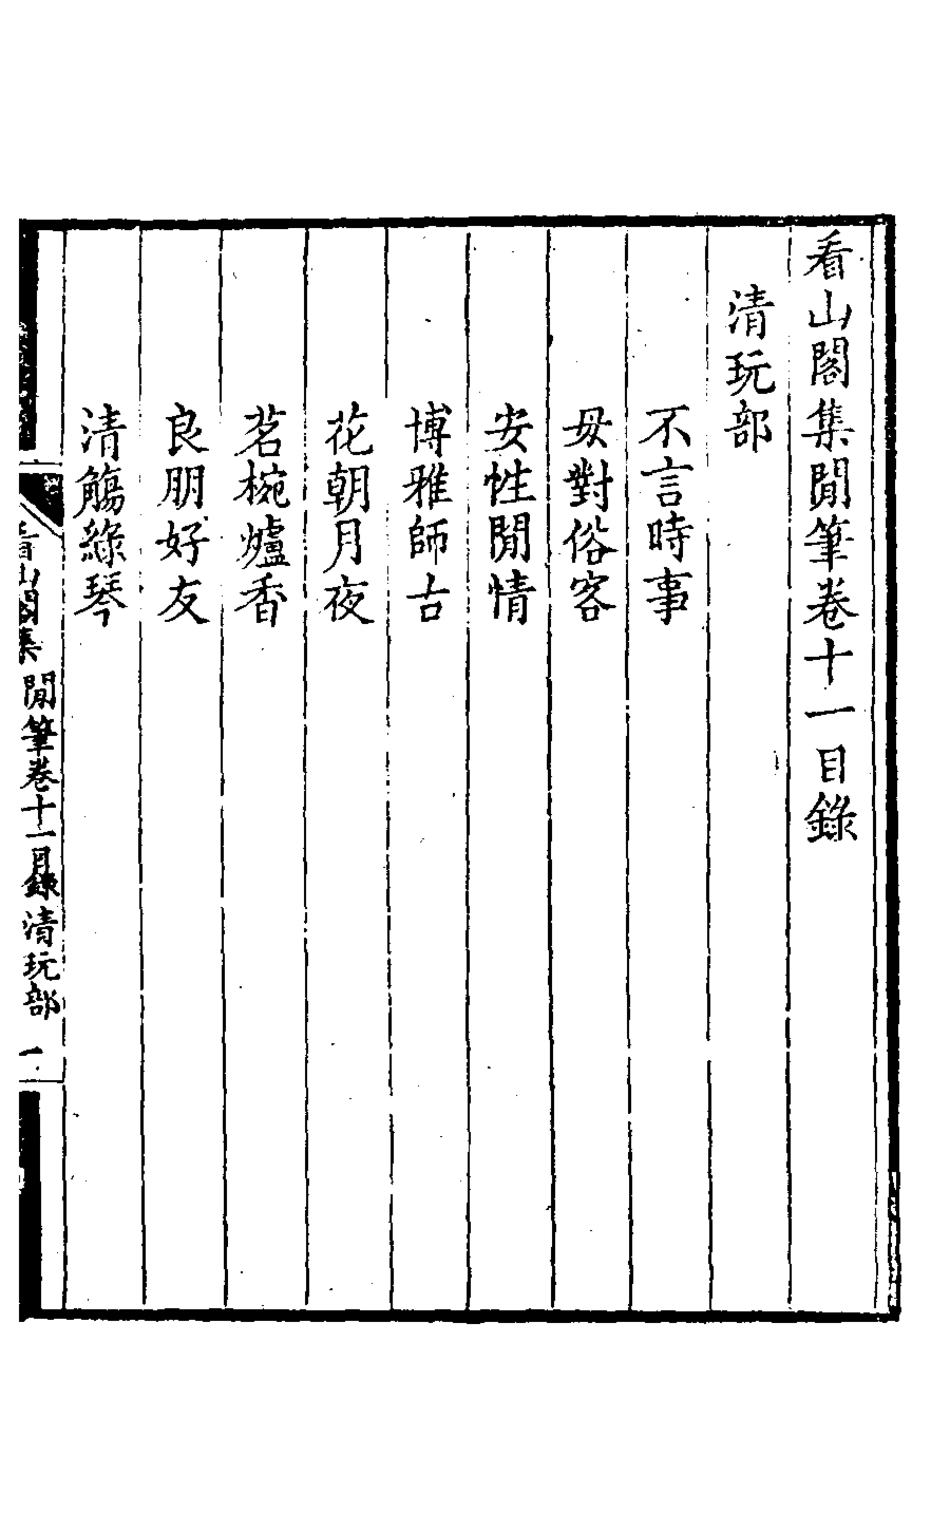 看山閣集閒筆卷十一目錄
清玩部
不言時事
毋對俗客
安性閒情
博雅師古
花朝月夜
茗椀爐香
良朋好友
清觴綠琴
看山閣集 閒筆卷十一目錄 清玩部 一